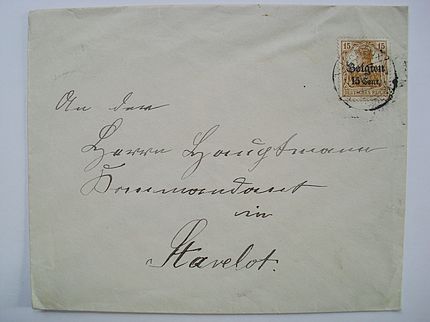 15 15
Belgien
15 Cent.
DEUTSCHES REICH
An den
Herrn Hauptmann
Kommandant
in
Stavelot.